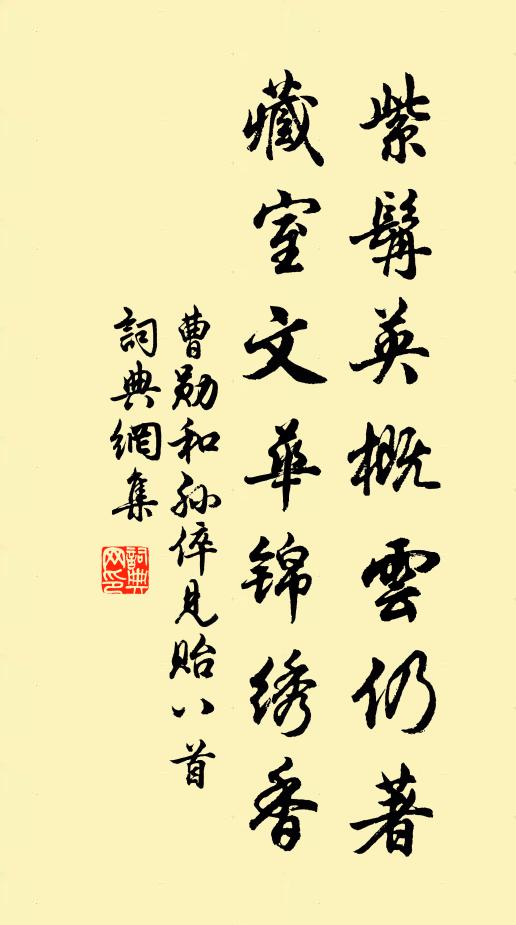 紫髯英概雲仍著
藏室文華錦綉香
曹勛和孫倅見貽八首
詞典網集
詞典
网印